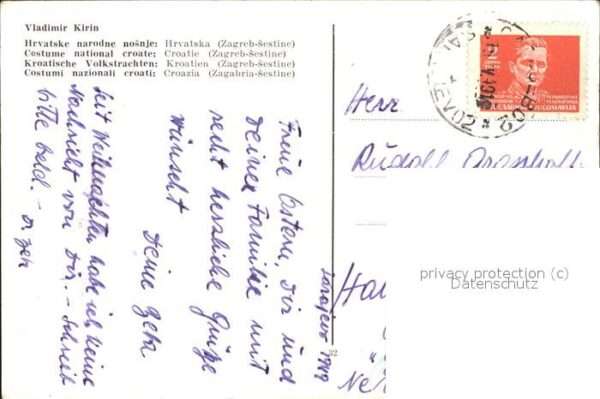 Vladimir Kirin
Hrvatske narodne nošnje: Hrvatska (Zagreb-šestine)
Costume national croate: Croatie (Zagreb-šestine)
Kroatische Volkstrachten: Kroatien (Zagreb-šestine)
Costumi nazionali croati: Croazia (Zagabria-šestine)
Frohe Ostern, Dir und
Deiner Familie mit
recht herzliche Grüße
wünscht
Deine Geza
Seit Weihnachten habe ich keine
Nachricht von Dir. - Schreib
bitte bald. -
Sarajevo
Herr
Rudolf
privacy protection (c)
Datenschutz